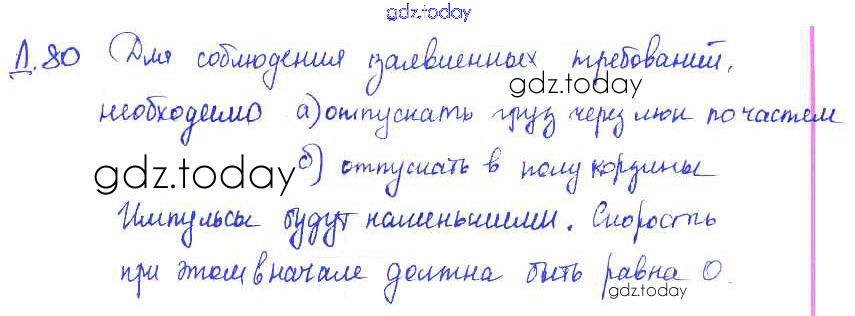 gdz.today
Д.80 Для соблюдения заявленных требований,
gdz.today
необходимо а) отпускать груз через люк по частям
gdz.today б) отпускать в полу корзины
Импульсы будут наименьшими. Скорость
при этом в начале должна быть равна 0.
gdz.today